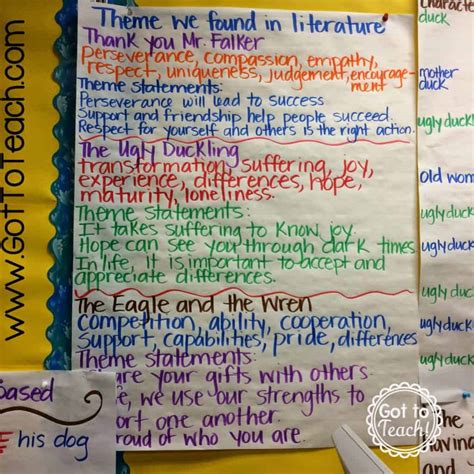 www.GotToTeach.com
Theme we found in literature
Thank you Mr. Falker
perseverance, compassion, empathy,
respect, uniqueness, judgement, encourage-
ment
Theme statements:
Perseverance will lead to success
Support and friendship help people succeed.
Respect for yourself and others is the right action.
The Ugly Duckling
transformation, suffering, joy,
experience, differences, hope,
maturity, loneliness.
Theme statements:
It takes suffering to know joy.
Hope can see you through dark times
In life, it is important to accept and
appreciate differences.
The Eagle and the Wren
Competition, ability, cooperation,
Support, capabilities, pride, differences
Theme statements:
your gifts with others.
we use our strengths to
one another.
of who you are.
Based
his dog
duck
mother
duck
ugly duck
old wom
ugly duck
ugly duck
ugly duck
ugly duck
Got to
Teach!
and